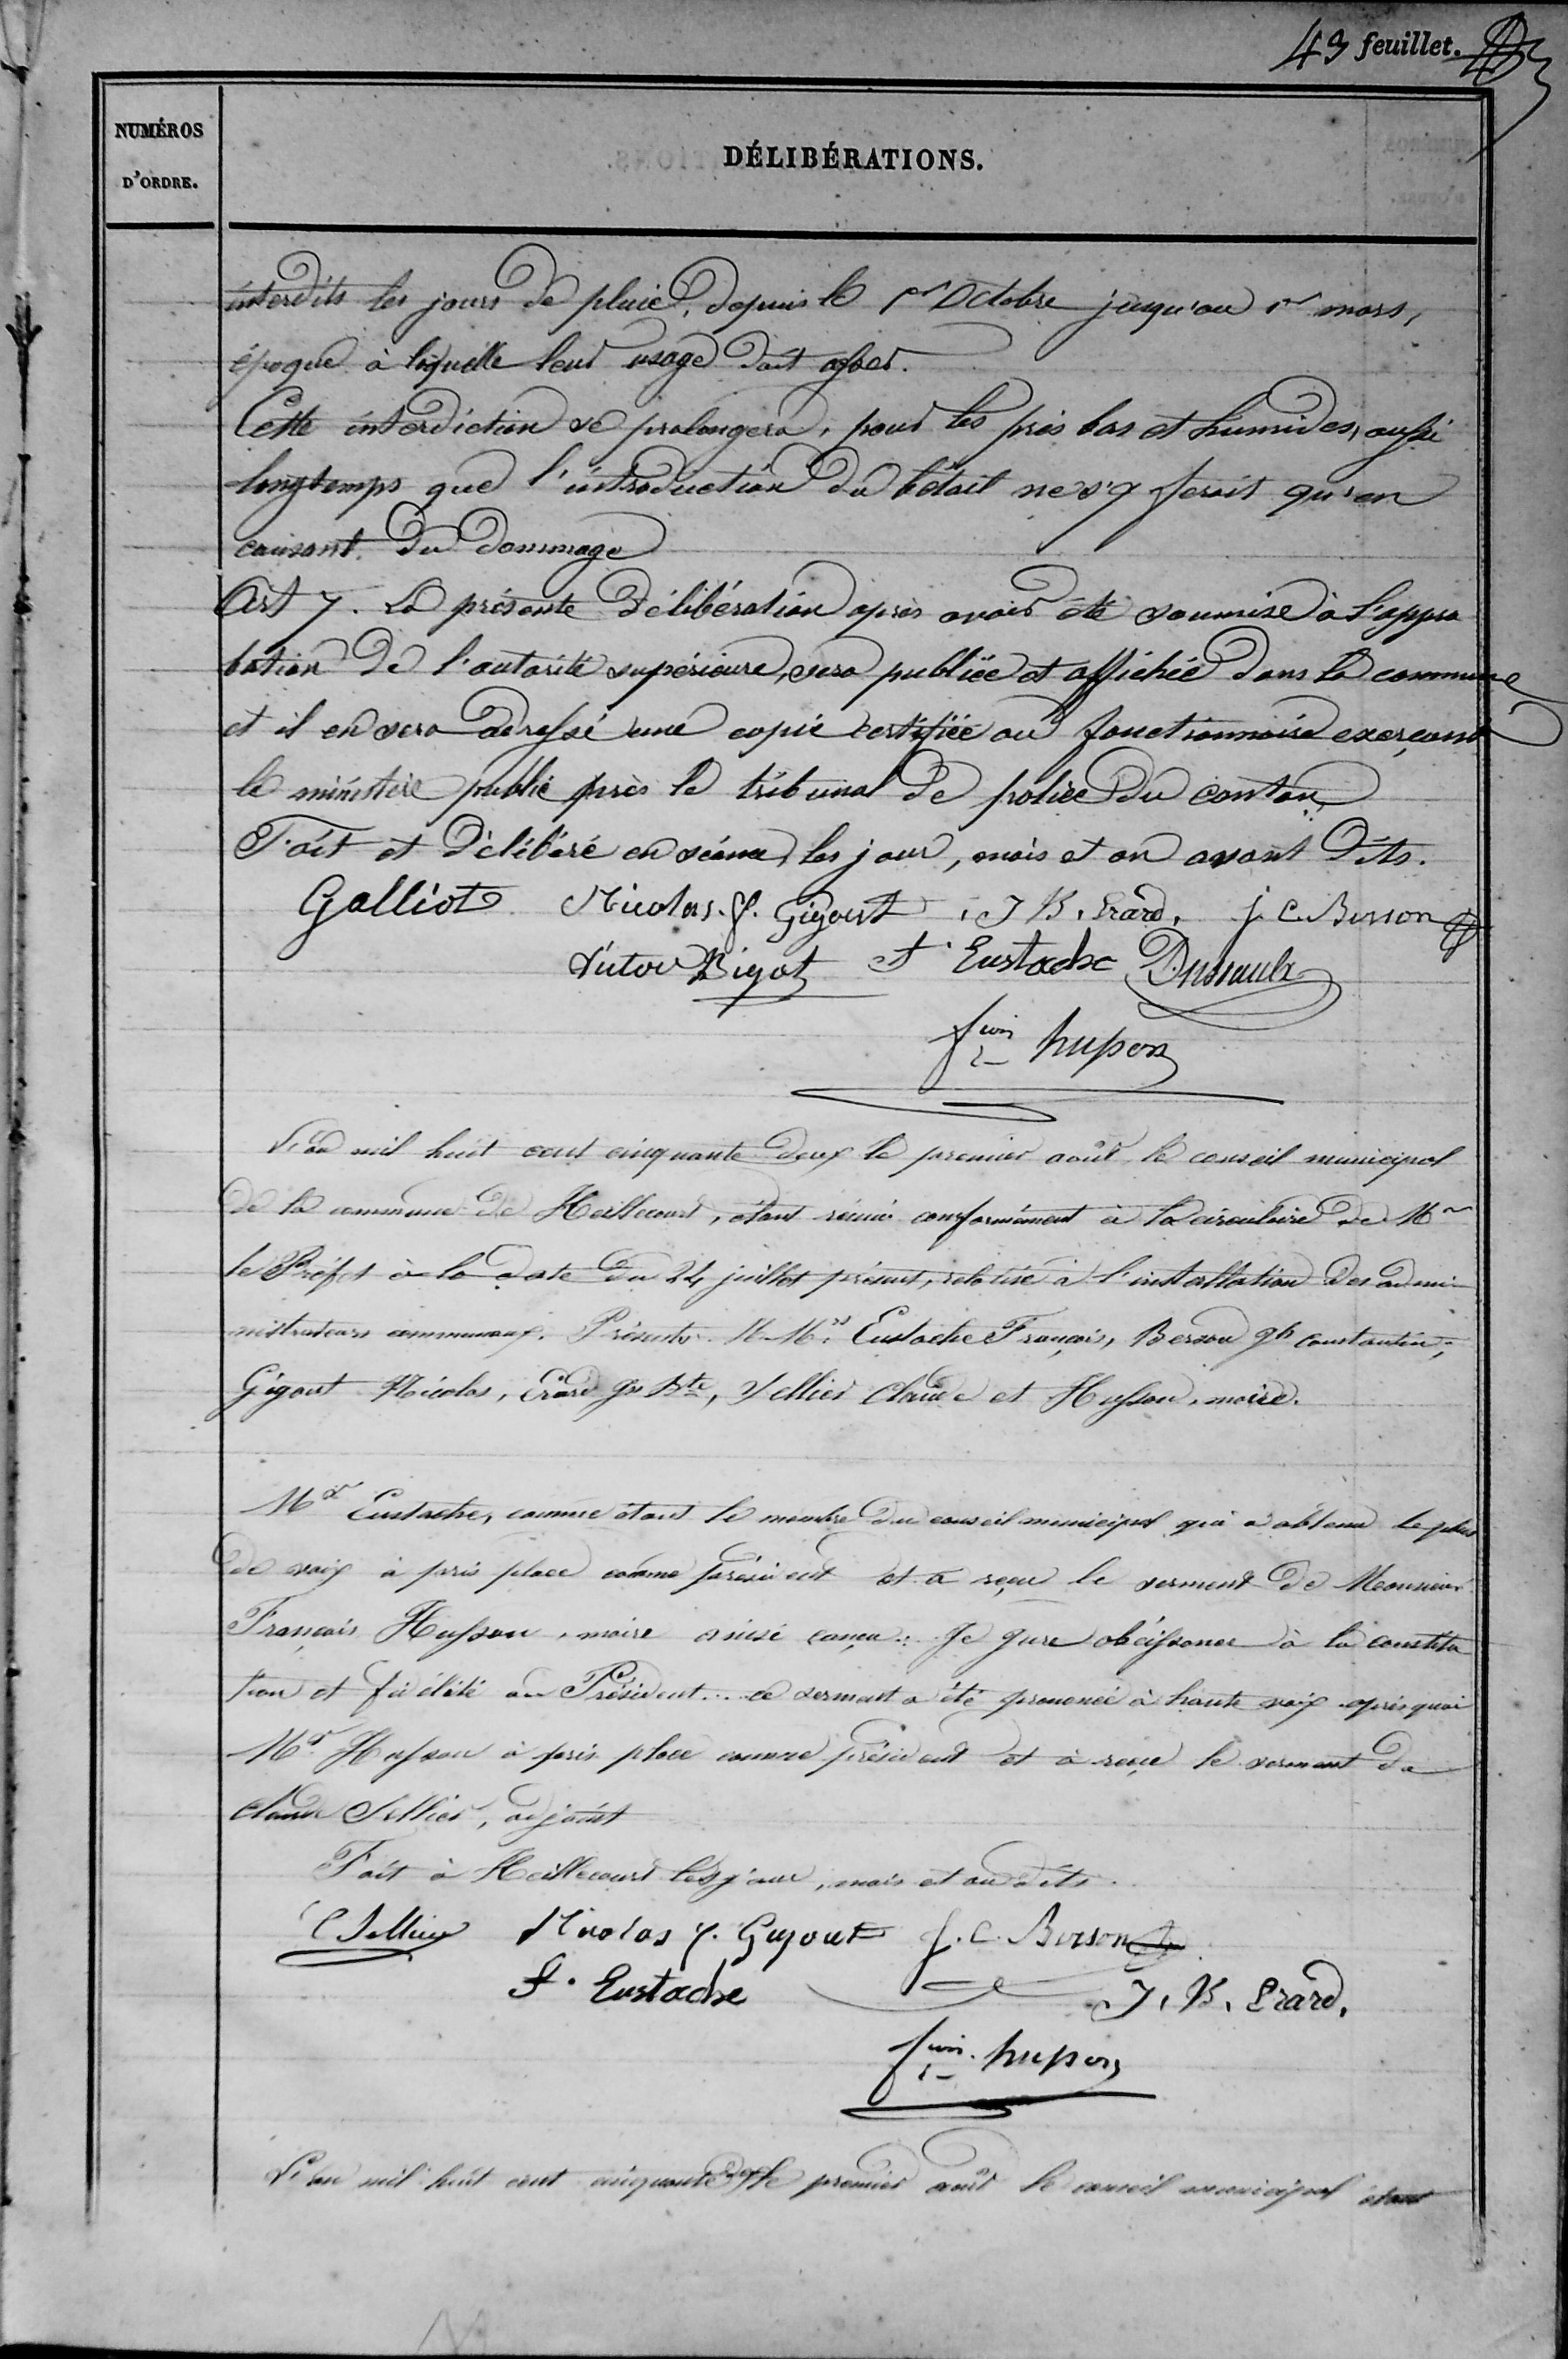 43 feuillet.
NUMÉROS
D'ORDRE.
DÉLIBÉRATIONS.
interdits les jours de pluie, depuis le 1er Octobre jusqu'au 1er mars,
époque à laquelle leur usage doit cesser.
Cette interdiction se prolongera, pour les prés bas et humides, aussi
longtemps que l'introduction du bétail ne s'y ferait qu'en
causant du dommage
Art 7. La présente délibération après avoir été soumise à l'appro
bation de l'autorité supérieure, sera publiée et affichée dans la commune
et il en sera adressé une copie certifiée au fonctionnaire exerçant
le ministère public près le tribunal de police du canton
Fait et délibéré en séance, les jour, mois et an avant dits.
Galliot Nicolas. f. Gigout, J B. Erard, J. C. Berson
Victor Bigot f Eustache Dussaulx
fcois husson
L'an mil huit cent cinquante deux le premier août, le conseil municipal
de la commune de Heillecourt, étant réuni conformément à la circulaire de Mr
le Préfet à la date du 24 juillet présent, relative à l'installation des admi
nistrateurs communaux. Présents M.Mrs Eustache François, Berson Jh Constantin,
Gigout Nicolas, Erard Jn Bte, Sellier Claude et Husson, maire.
Mr Eustache, comme étant le membre du conseil municipal qui a obtenu le plus
de voix à pris place comme président et a reçu le serment de Monsieur
François Husson, maire ainsi conçu: Je jure obéissance à la constitu
tion et fidélité au Président... ce serment a été prononcé à haute voix après quoi
Mr Husson à pris place comme président et à reçu le serment de
Claude Sellier, adjoint
Fait à Heillecourt les jour, mois et an dits.
C Sellier Nicolas f. Gigout J. C. Berson
f. Eustache J. B. Erard,
fcois. husson
L'an mil huit cent cinquante deux le premier août le conseil municipal étant